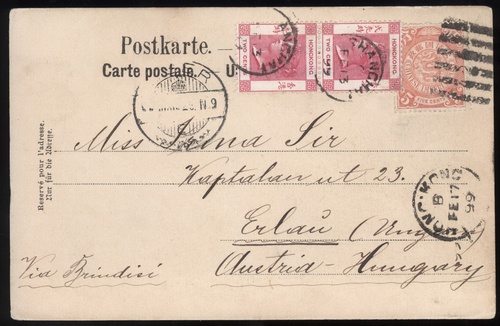 Postkarte.
Carte postale.
TWO CENTS
HONGKONG
TWO CENTS
HONGKONG
FIVE CENTS
SHANGHAI
FE 13
99
Miss Irma Sir
Kaptalan ut 23.
Erlau (Ung
Austria-Hungary
Via Brindisi
HONG-KONG
B
FE 17
99
Réservé pour l'adresse.
Nur für die Adresse.